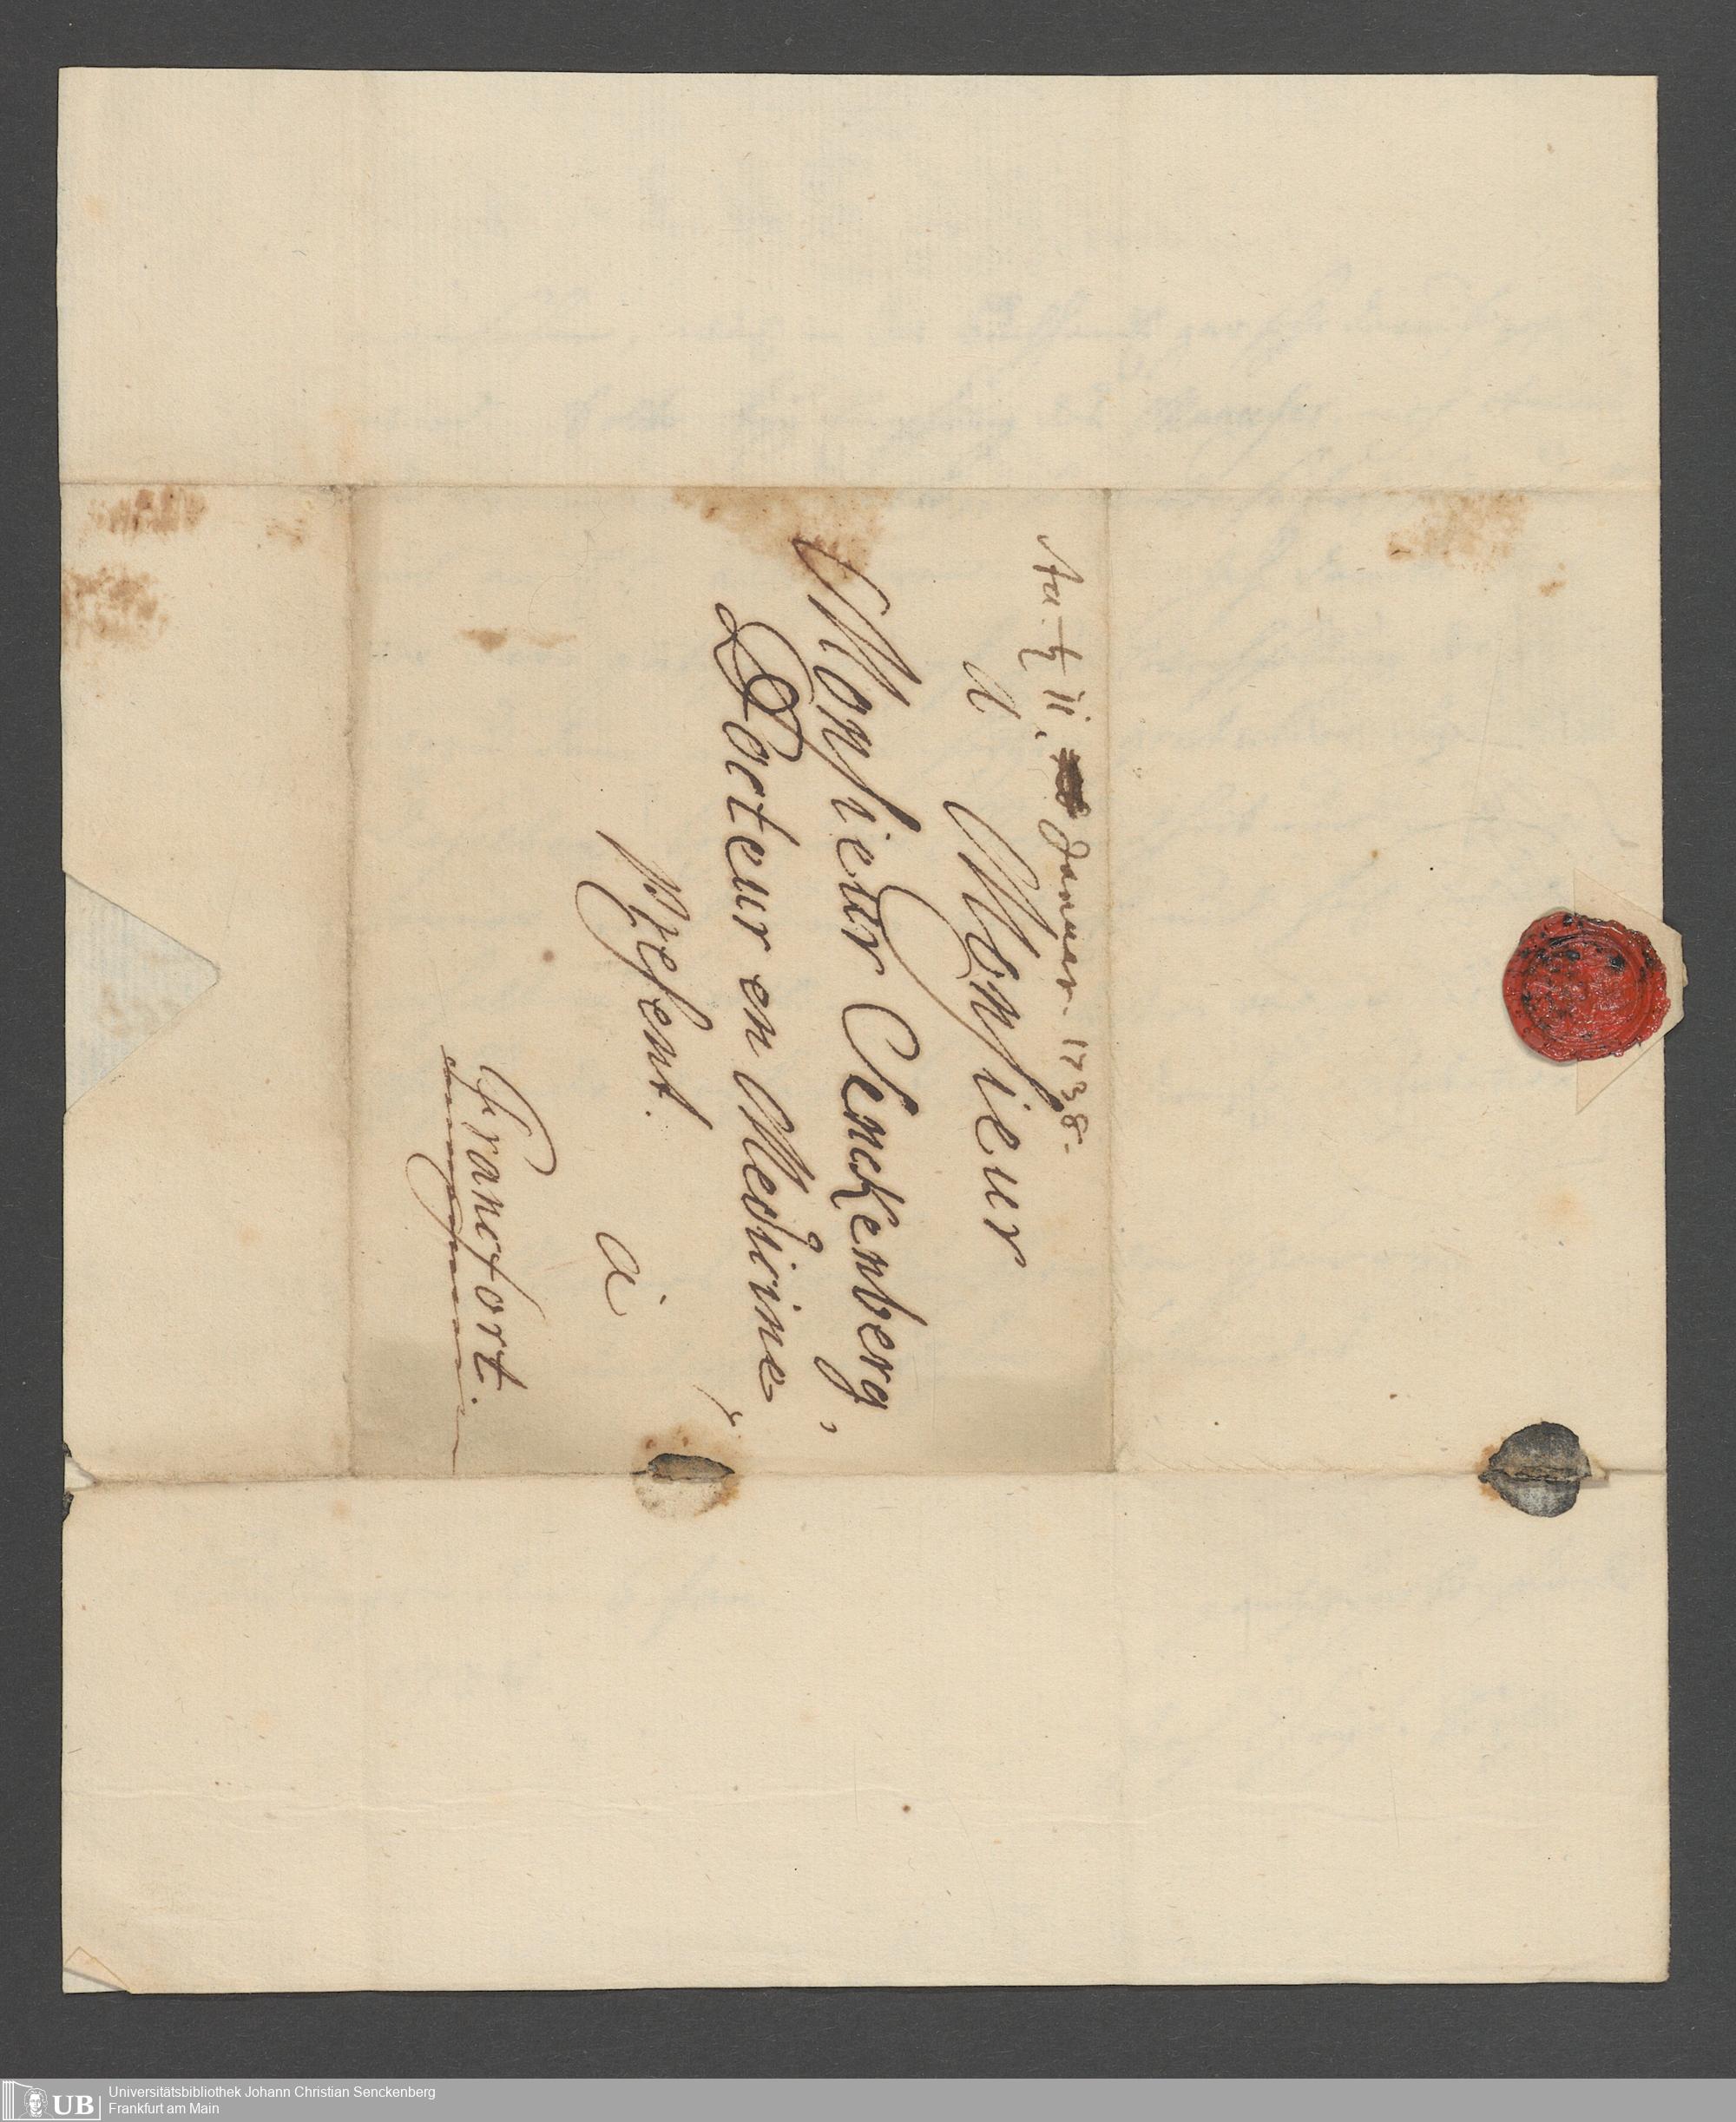 ♄ 11. Januar. 1738.
A Monsieur
Monsieur Senckenberg,
Docteur en Medicine,
present.
à
Francfort.
UB
Universitätsbibliothek Johann Christian Senckenberg
Frankfurt am Main